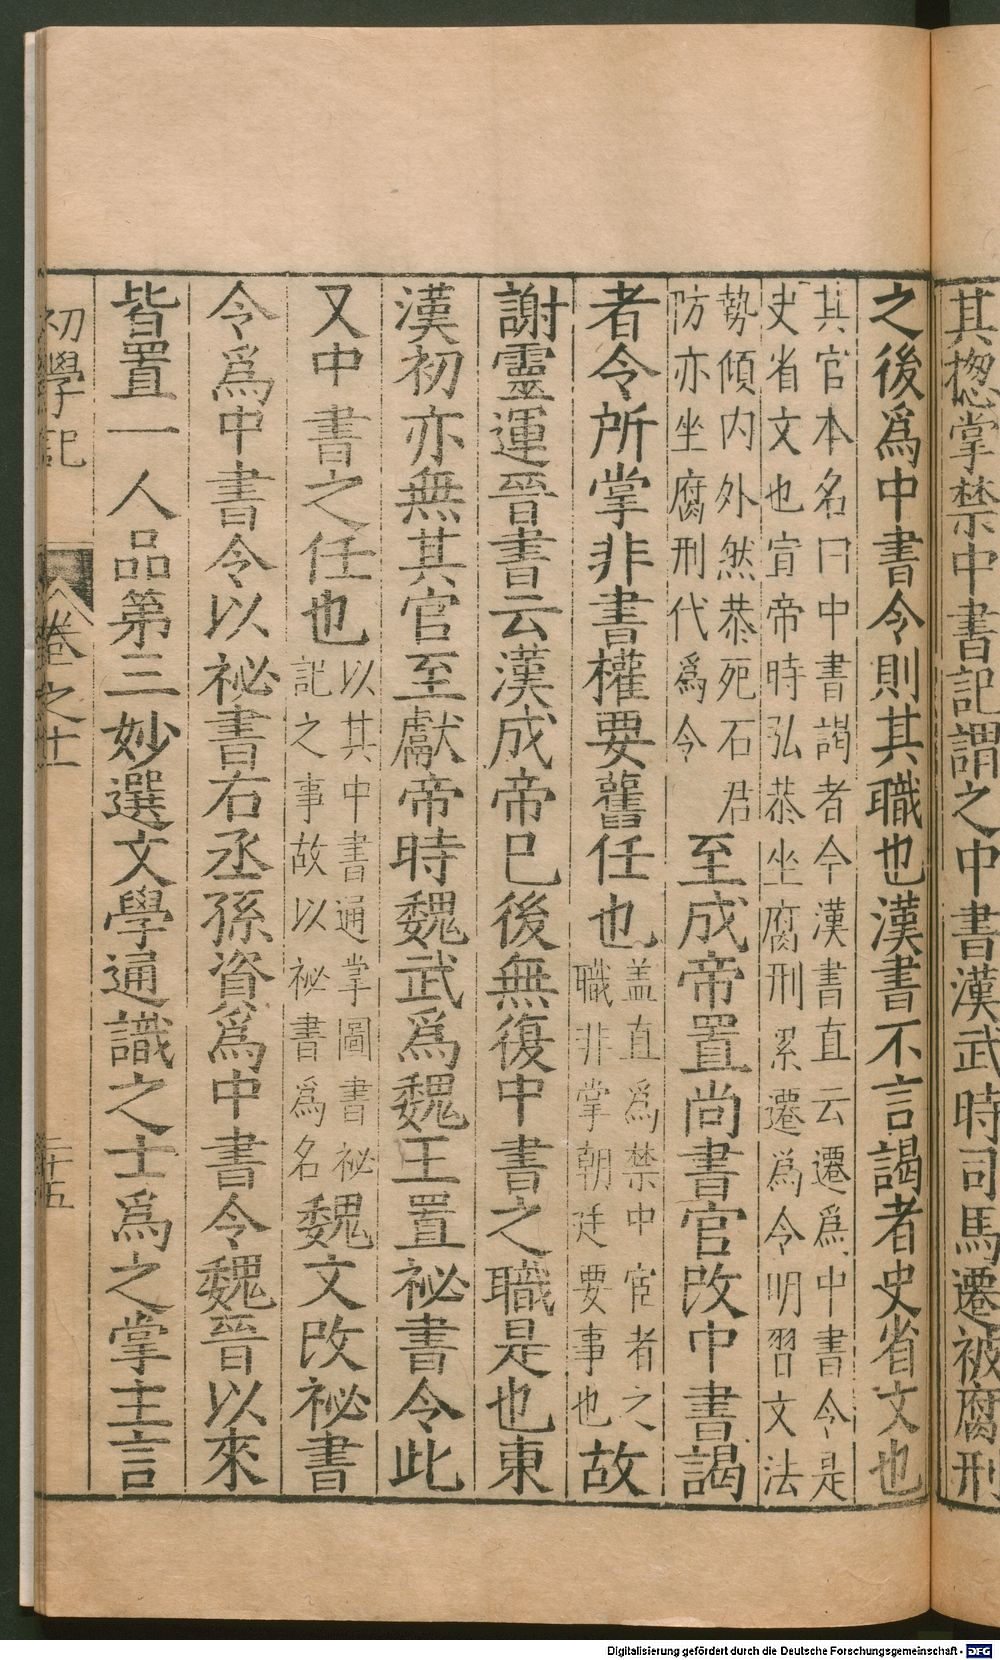 其惣掌禁中書記謂之中書漢武時司馬遷被腐刑
之後爲中書令則其職也漢書不言謁者史省文也
其官本名曰中書謁者令漢書直云遷爲中書令是
史省文也宣帝時弘恭坐腐刑累遷爲令明習文法
勢傾内外然恭死石君
防亦坐腐刑代爲令
至成帝置尚書官改中書謁
者令所掌非書權要舊任也
盖直爲禁中宦者之
職非掌朝廷要事也
故
謝靈運晉書云漢成帝已後無復中書之職是也東
漢初亦無其官至獻帝時魏武爲魏王置祕書令此
又中書之任也
以其中書通掌圖書祕
記之事故以祕書爲名
魏文改祕書
令爲中書令以祕書右丞孫資爲中書令魏晉以來
皆置一人品第三妙選文學通識之士爲之掌主言
初學記
卷之十一
二十五
Digitalisierung gefördert durch die Deutsche Forschungsgemeinschaft - DFG